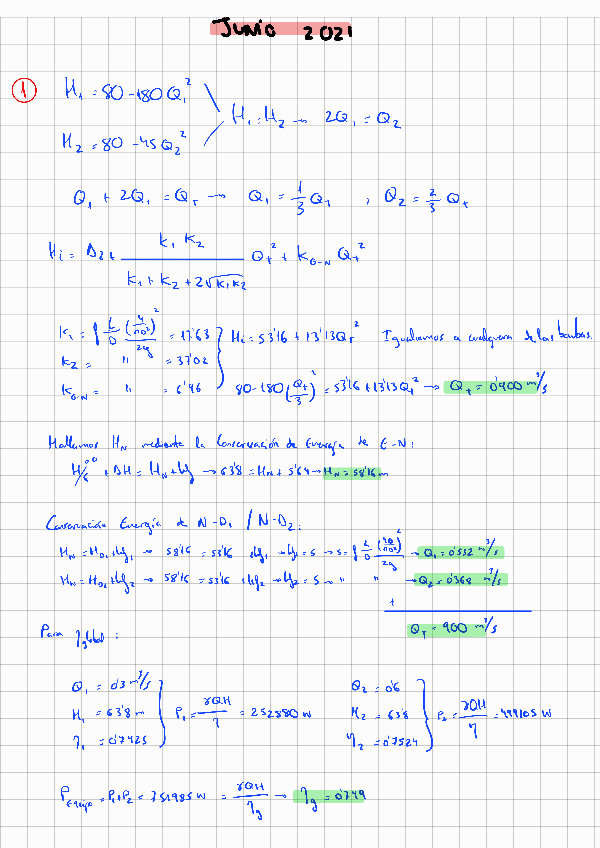 Junio 2021
①
H₁ = 80 - 180 Q₁²
H₂ = 80 - 45 Q₂²
H₁ = H₂ → 2Q₁ = Q₂
Q₁ + 2Q₁ = Q_T → Q₁ = 1/3 Q_T , Q₂ = 2/3 Q_T
Hi = Δz + K₁ K₂ / (K₁ + K₂ + 2√K₁K₂) Q_T² + K_{O-N} Q_T²
K₁ = f L/D (4/πD²)²/2g = 17'63
K₂ = " = 37'02
K_{O-N} = " = 6'96
Hi = 53'16 + 13'13 Q_T² Igualamos a cualquiera de las bombas.
80 - 180 (Q_T/3)² = 53'16 + 13'13 Q_T² → Q_T = 0'900 m³/s
Hallamos H_N mediante la Conservación de Energía de E-N:
+ ΔH = H_N + hf → 63'8 = H_N + 5'64 → H_N = 58'16 m
Conservación Energía de N-D₁ / N-D₂:
H_N = H_{D1} + hf₁ → 58'16 = 53'16 + hf₁ → hf₁ = 5 → 5 = f L/D (4Q/πD²)²/2g → Q₁ = 0'532 m³/s
H_N = H_{D2} + hf₂ → 58'16 = 53'16 + hf₂ → hf₂ = 5 → " " → Q₂ = 0'368 m³/s
+
Q_T = 900 m³/s
Para η global:
Q₁ = 0'3 m³/s
H₁ = 63'8 m
η₁ = 0'7425
P₁ = γQH/η = 252880 W
Q₂ = 0'6
H₂ = 63'8
η₂ = 0'7524
P₂ = γQH/η = 499105 W
P_{Equipo} = P₁ + P₂ = 751985 W = γQH/η_g → η_g = 0'749